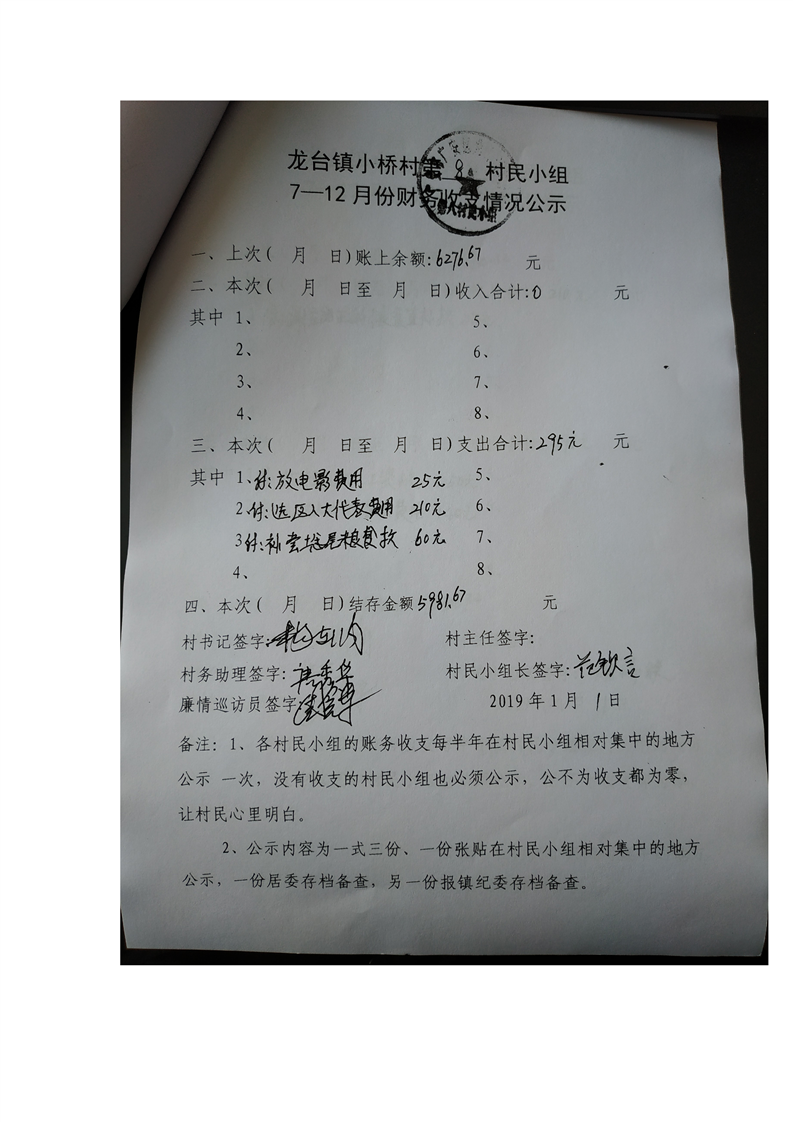 龙台镇小桥村第 8 村民小组
7—12月份财务收支情况公示
一、上次( 月 日)账上余额:6276.67 元
二、本次( 月 日至 月 日)收入合计:0 元
其中 1、 5、
2、 6、
3、 7、
4、 8、
三、本次( 月 日至 月 日)支出合计:295元 元
其中 1、付:放电影费用 25元 5、
2、付:选区人大代表费用 210元 6、
3、付:补尝 60元 7、
4、 8、
四、本次( 月 日)结存金额5981.67 元
村书记签字: 村主任签字:
村务助理签字: 村民小组长签字:
廉情巡访员签字 2019年1月 1日
备注:1、各村民小组的账务收支每半年在村民小组相对集中的地方
公示 一次，没有收支的村民小组也必须公示，公不为收支都为零，
让村民心里明白。
2、公示内容为一式三份、一份张贴在村民小组相对集中的地方
公示，一份居委存档备查，另一份报镇纪委存档备查。